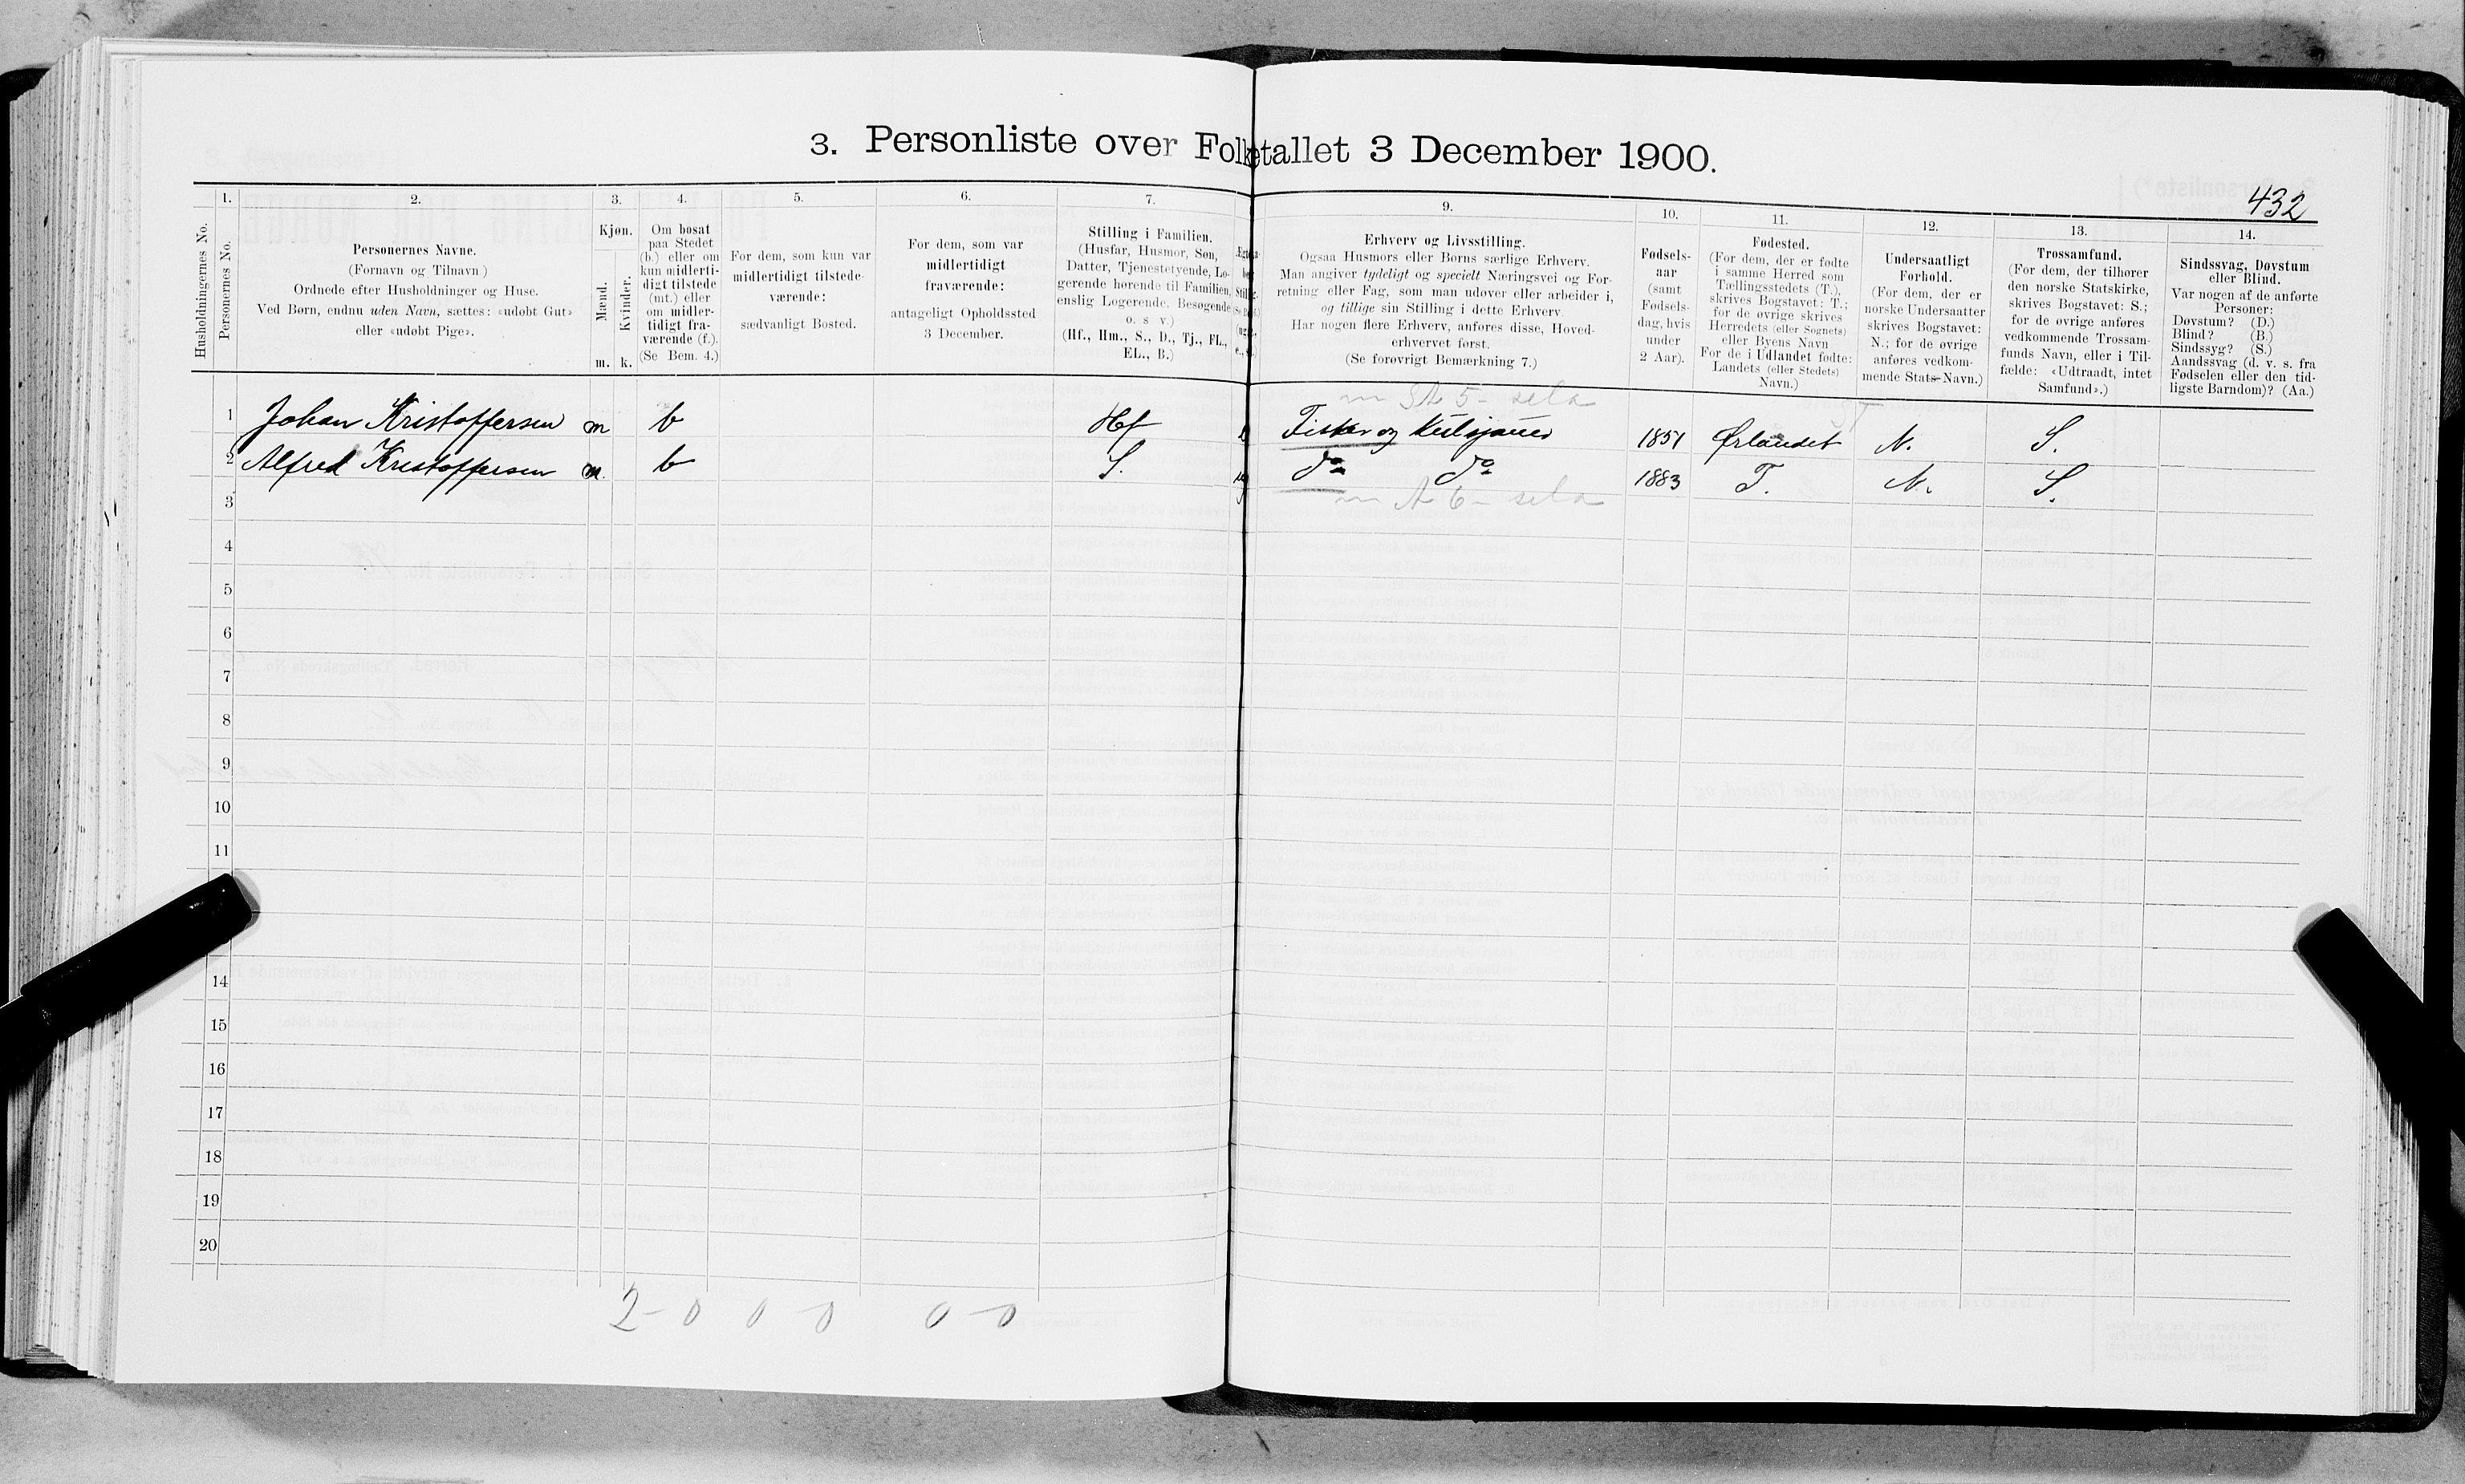 3. Personliste over Folketallet 3 December 1900.
432
Husholdningernes No.
1.
Personernes No.
2.
Personernes Navne.
(Fornavn og Tilnavn)
Ordnede efter Husholdninger og Huse.
Ved Børn, endnu uden Navn, sættes: «udøbt Gut»
eller «udøbt Pige».
3.
Kjøn.
Mænd.
Kvinder.
m. k.
4.
Om bosat
paa Stedet
(b.) eller om
kun midlerti-
digt tilstede
(mt.) eller
om midler-
tidigt fra-
værende (f.).
(Se Bem. 4.)
5.
For dem, som kun var
midlertidigt tilstede-
værende:
sædvanligt Bosted.
6.
For dem, som var
midlertidigt
fraværende:
antageligt Opholdssted
3 December.
7.
Stilling i Familien.
(Husfar, Husmor, Søn,
Datter, Tjenestetyende, Lo-
gerende hørende til Familien,
enslig Logerende, Besøgende
o. s v.)
(Hf., Hm., S., D., Tj., FL.,
EL., B.)
9.
Erhverv og Livsstilling.
Ogsaa Husmors eller Børns særlige Erhverv.
Man angiver tydeligt og specielt Næringsvei og For-
retning eller Fag, som man udøver eller arbeider i,
og tillige sin Stilling i dette Erhverv.
Har nogen flere Erhverv, anføres disse, Hoved-
erhvervet først.
(Se forøvrigt Bemærkning 7.)
10.
Fødsels-
aar
(samt
Fødsels-
dag, hvis
under
2 Aar).
11.
Fødested.
(For dem, der er fødte
i samme Herred som
Tællingsstedets (T.),
skrives Bogstavet: T.;
for de øvrige skrives
Herredets (eller Sognets)
eller Byens Navn
For de i Udlandet fødte:
Landets (eller Stedets)
Navn.)
12.
Undersaatligt
Forhold.
(For dem, der er
norske Undersaatter
skrives Bogstavet:
N.; for de øvrige
anføres vedkom-
mende Stats-Navn.)
13.
Trossamfund.
(For dem, der tilhører
den norske Statskirke,
skrives Bogstavet: S.;
for de øvrige anføres
vedkommende Trossam-
funds Navn, eller i Til-
fælde: «Udtraadt, intet
Samfund».)
14.
Sindssvag, Døvstum
eller Blind.
Var nogen af de anførte
Personer:
Døvstum? (D.)
Blind? (B.)
Sindssyg? (S.)
Aandssvag (d. v. s. fra
Fødselen eller den tid-
ligste Barndom)? (Aa.)
sela
ST
1 Johan Kristoffersen m b Hf Fisker og 1851 Ørlandet N. S.
2 Alfred Kristoffersen m. b S. do do 1883 T. N. S.
sela
3
4
5
6
7
8
9
10
11
14
15
16
17
18
19
20
2-0 0 0 0-0